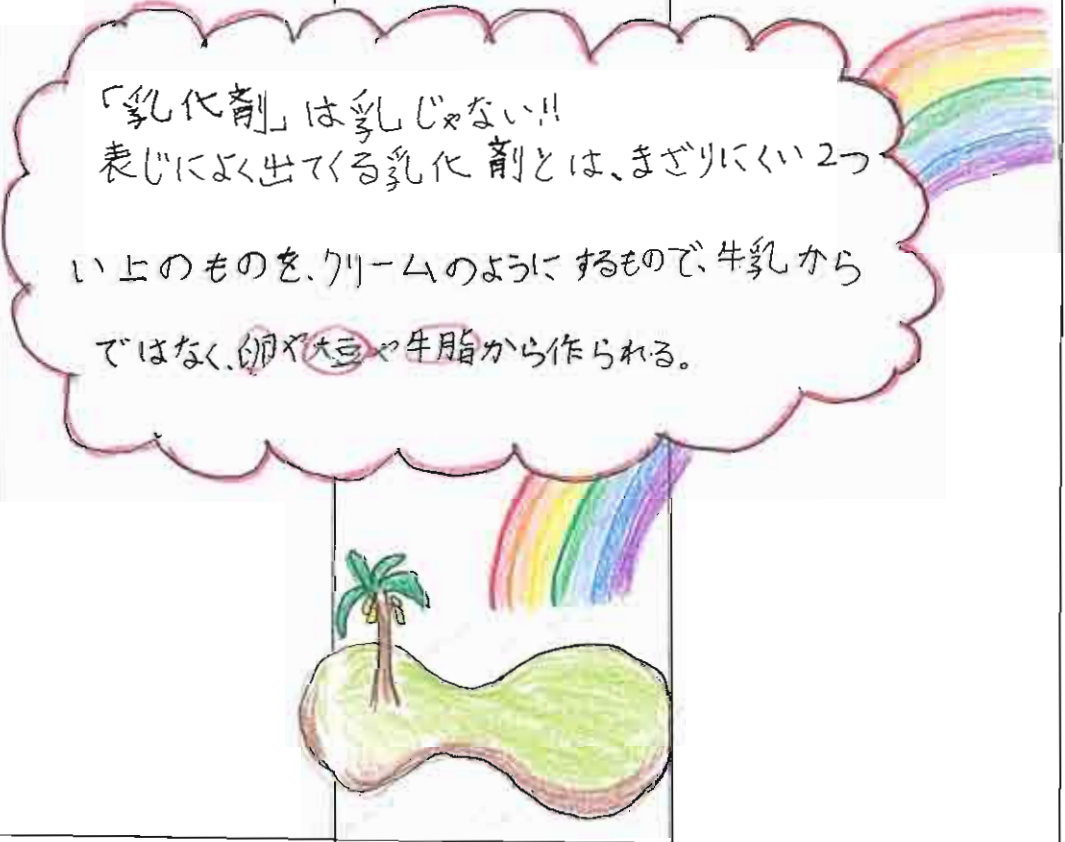 「乳化剤」は乳じゃない!!
表じによく出てくる乳化剤とは、まざりにくい2つ
い上のものを、クリームのようにするもので、牛乳から
ではなく、卵や大豆や牛脂から作られる。